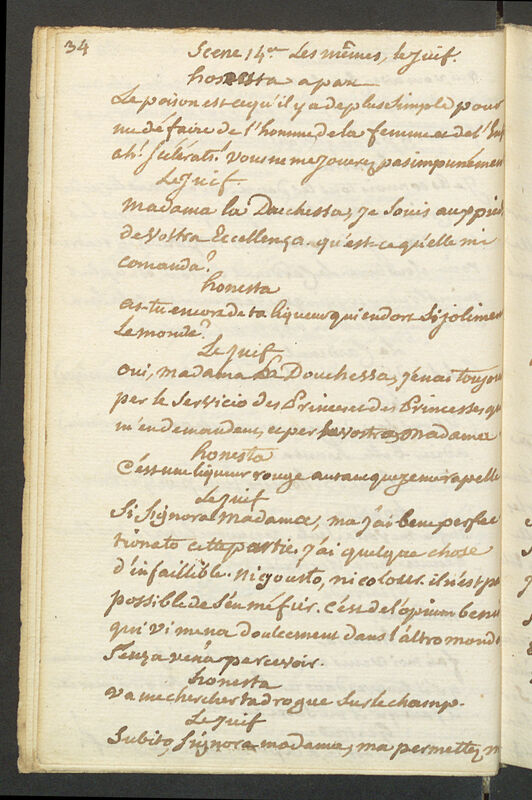 34
Scene 14e. Les mêmes, le Juif.
honesta a part
Le poison est ce qu'il y a de plus simple pour
me défaire de l'homme, de la femme et de l'
ah! scélérats! Vous ne me jouerez pas impunément
Le Juif.
Madama la Duchessa, je souis aux pied
de Vostra Eccellença. qu'est-ce qu'elle mi
comanda?
honesta
as-tu encore de ta liqueur qui endort si joliment
Le monde?
Le Juif
oui, madama La Douchessa, j'en ai toujou
per le Servicio des Princes et des Princesses qu
m'en demandent, et per la vostra, Madama
honesta
C'est une liqueur rouge autant que je me rapelle
Le Juif
Si Signora Madama, ma j'ai bene perfec
tionato cette partie, j'ai quelque chose
d'infaillible. ni gousto, ni colore. il n'est p
possible de s'en méfier. C'est de l'opium
qui vi mena doulcement dans l'altro mond
Senza ven'a percevoir.
honesta
va me chercher ta drogue sur le champ.
Le Juif
Subito, Signora madama, ma permettez